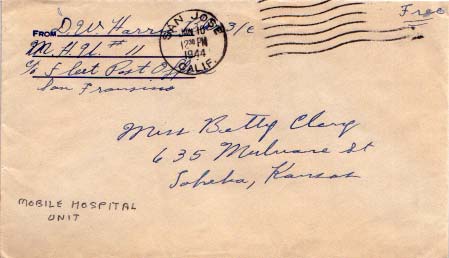 Free
SAN JOSE
JUN 10
12 30 PM
1944
CALIF.
FROM D.W. Harris 3/c
M.H.U. # 11
c/o Fleet Post Office
San Fransisco
Miss Betty Clary
635 Mulvane St
Topeka, Kansas
MOBILE HOSPITAL
UNIT